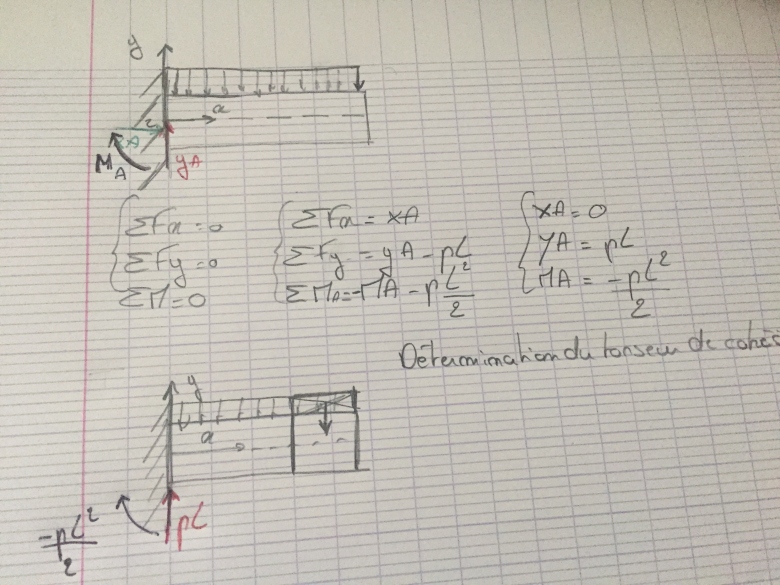 y
x
z
XA
MA
yA
ΣFx = 0
ΣFy = 0
ΣM = 0
ΣFx = XA
ΣFy = yA - pL
ΣMA = -MA - pL²/2
XA = 0
YA = pL
MA = -pL²/2
Détermination du torseur de cohés
y
x
-pL²/2
pL